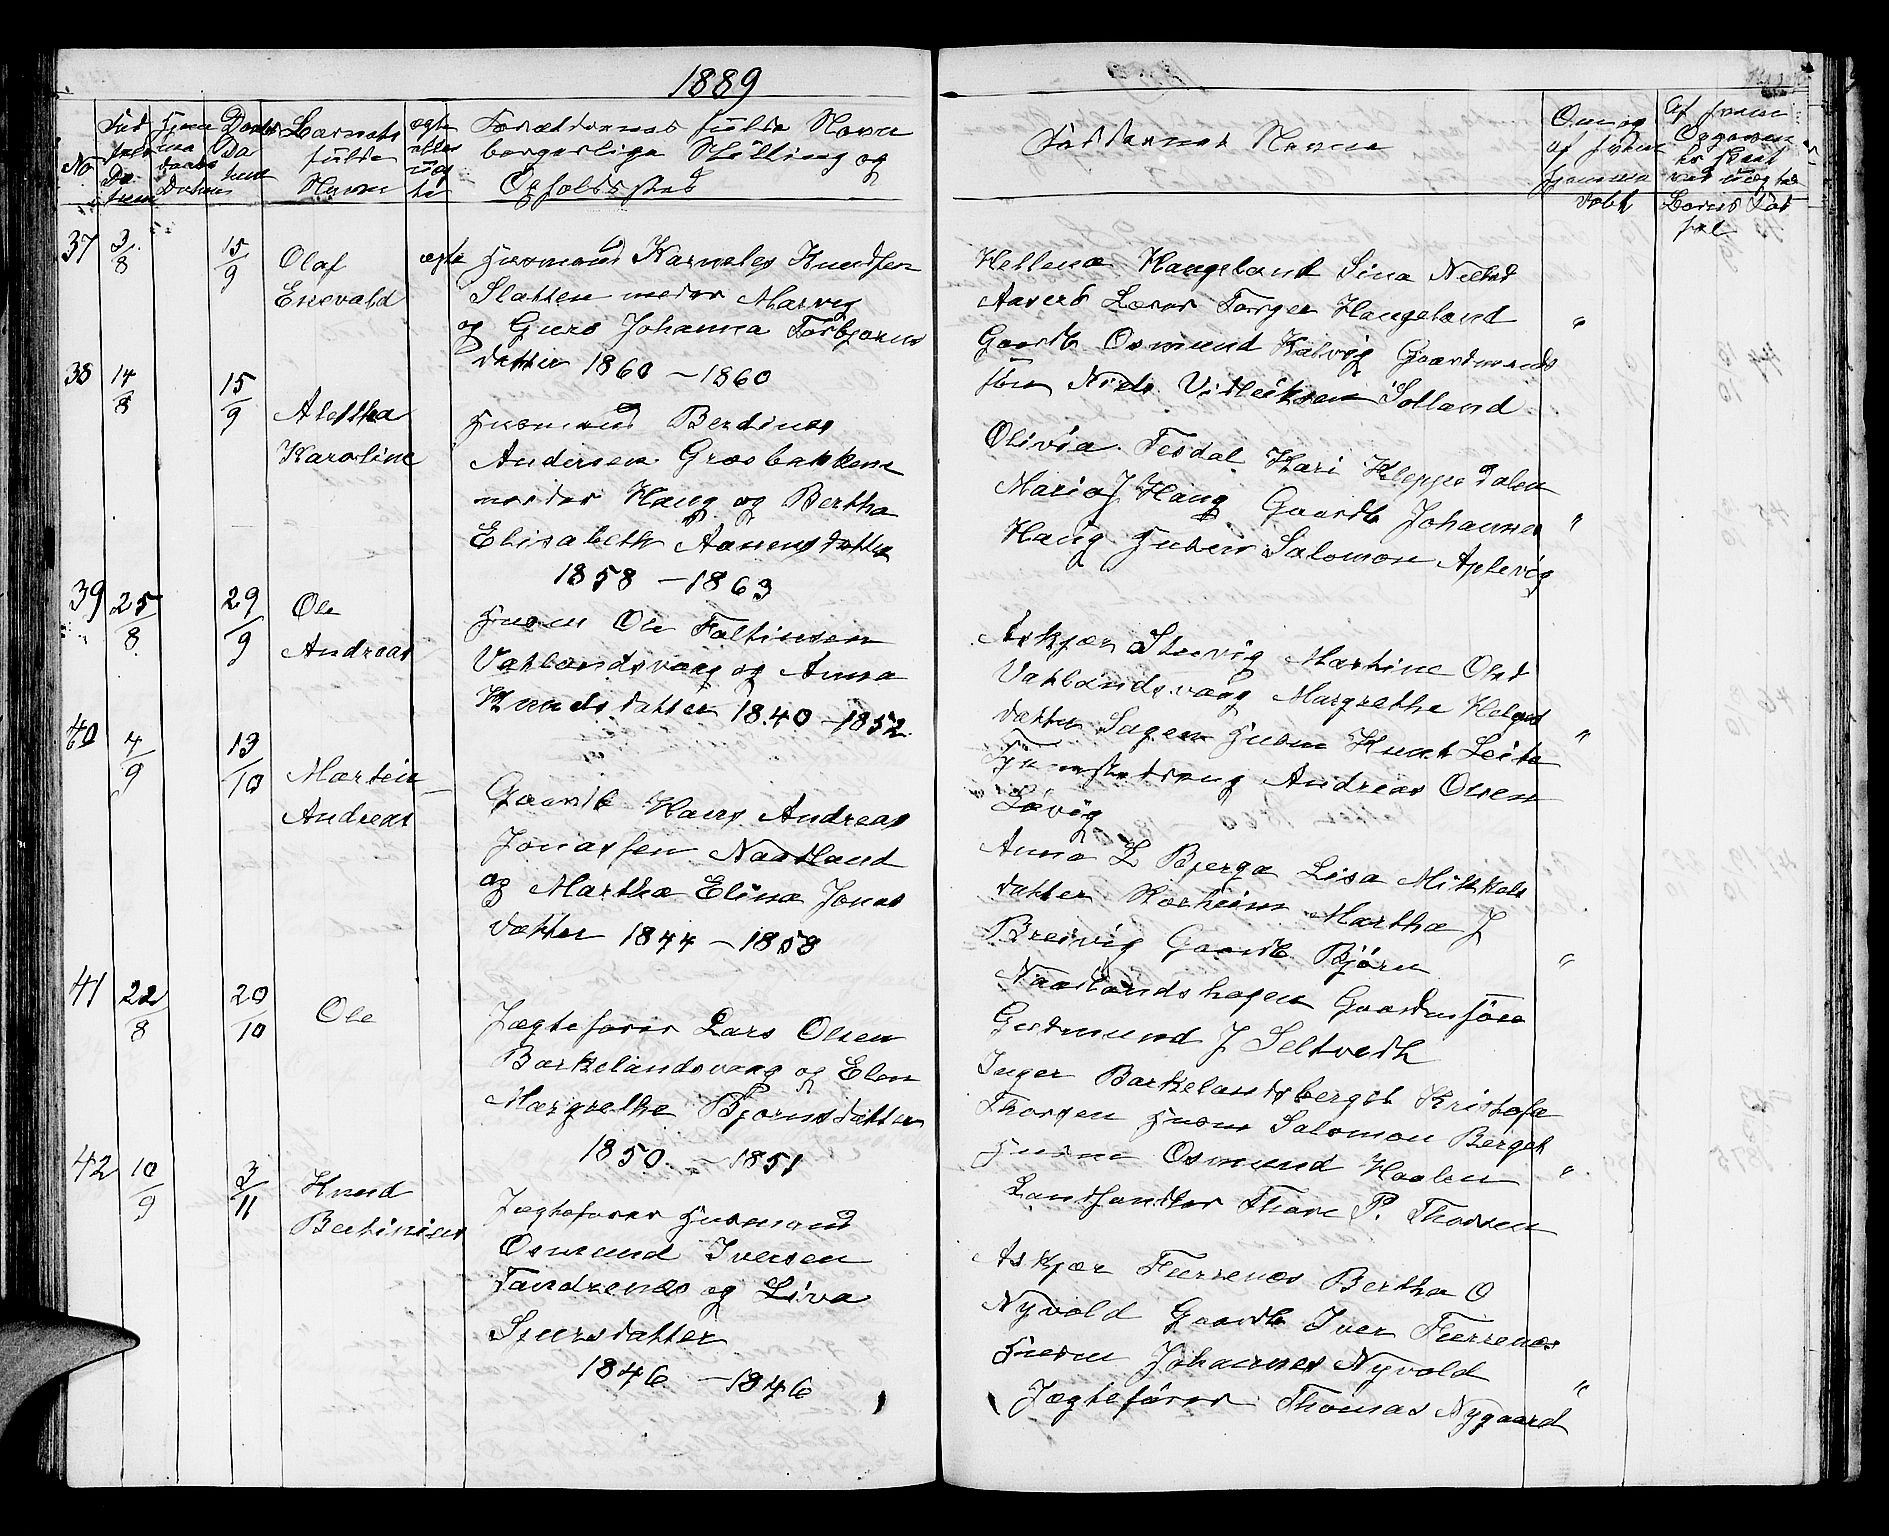 1889
No
Fød
Datum
Hjemmedaabs
Datum
Daabs
Datum
Barnets
fulde
Navn
ægte
eller
uægte
Forældrenes fulde Navn
borgerlige Stilling og
Opholdssted
Faddernes Navne
Om og
af hvem
hjemme
døbt
Af hvem
Opgaven
er skeet
ved uægte
Børns Fødsel
37 3/8 15/9 Olaf
Enevald
ægte
Husmand Kornelius Knudsen
Slatten nedre Marvig
og Guro Johanna Torbjørns
datter 1860 – 1860
Hellena Haugeland Sina Nilsd
Aavert Lærer Torger Haugeland
Gaardb Osmund Kalvig Gaardmands
søn Nils Vitleiksen Solland
"
38 14/8 15/9 Alettha
Karoline
Husmand Berdines
Andersen Græsbakken
nedre Haug og Bertha
Elisabeth Aanensdatter
1858 – 1863
Olivia Tesdal Kari Kleppedalen
Maria J Haug Gaardb Johannes
Haug Husm Salomon Aplevig
"
39 25/8 29/9 Ole
Andreas
Husm Ole Faltinsen
Vatlandsvaag og Anna
Knudsdatter 1840 – 1852
Askjær Stuvig Martine Olsd
Vatlandsvaag Margrethe Helges
datter Sagen Husm Knut Leite
Andreas Olsen
Løvig
"
40 4/9 13/10 Martin
Andreas
Gaardb Hans Andreas
Jonassen Naadland
og Martha Elina Jonas
datter 1844 – 1858
Anna L Bjerga Lisa Mikkels
datter Kørheim Martha J
Breivig Gaardb Bjørn
Naadlandshagen Gaardmsøn
Gudmund J Seltvedt
"
41 22/8 20/10 Ole
Jægtefører Lars Olsen
Barkelandsvaag og Elen
Margrethe Bjørnsdatter
1850 – 1851
Inger Barkelandsberget Kristofa
Thorsen Husm Salomon Berget
Husm Osmund Haalen
Landhandler Thore P. Thorsen
"
42 10/9 3/11 Knud
Bertinius
Jægtefører Husmand
Osmund Iversen
Tandrenes og Liva
Sjursdatter
1846 – 1846
Askjær Furrenes Bertha O
Nyvold Gaardb Iver Furrenes
Husm Johannes Nyvold
Jægtefører Thomas Nygaard
"